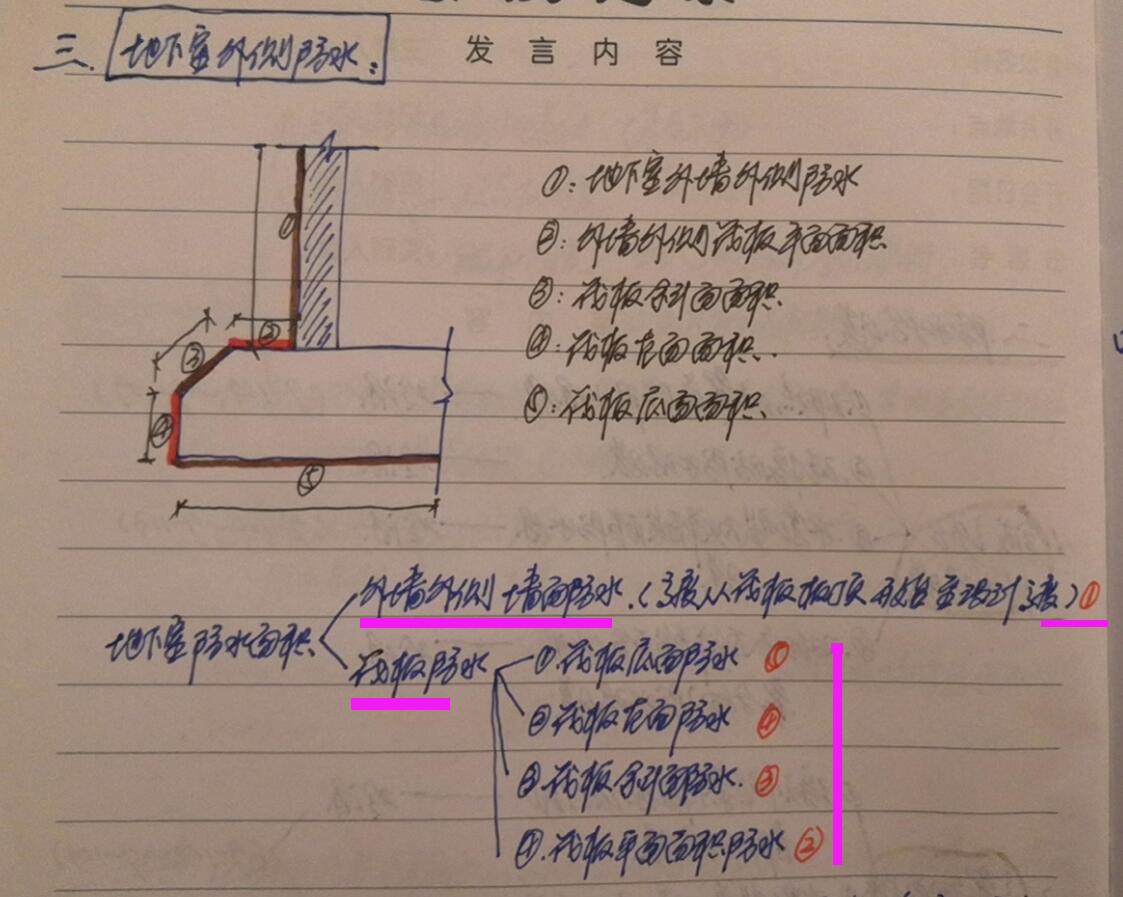 三. 地下室外侧防水:
发言内容
①: 地下室外墙外侧防水
②: 外墙外侧筏板平面面积
③: 筏板斜面面积.
④: 筏板立面面积.
⑤: 筏板底面面积.
①
②
③
④
⑤
外墙外侧墙面防水.(高度从筏板板顶 ①
地下室防水面积
筏板防水
①.筏板底面防水 ⑤
②.筏板立面防水 ④
③.筏板斜面防水. ③
④.筏板平面面积防水 ②